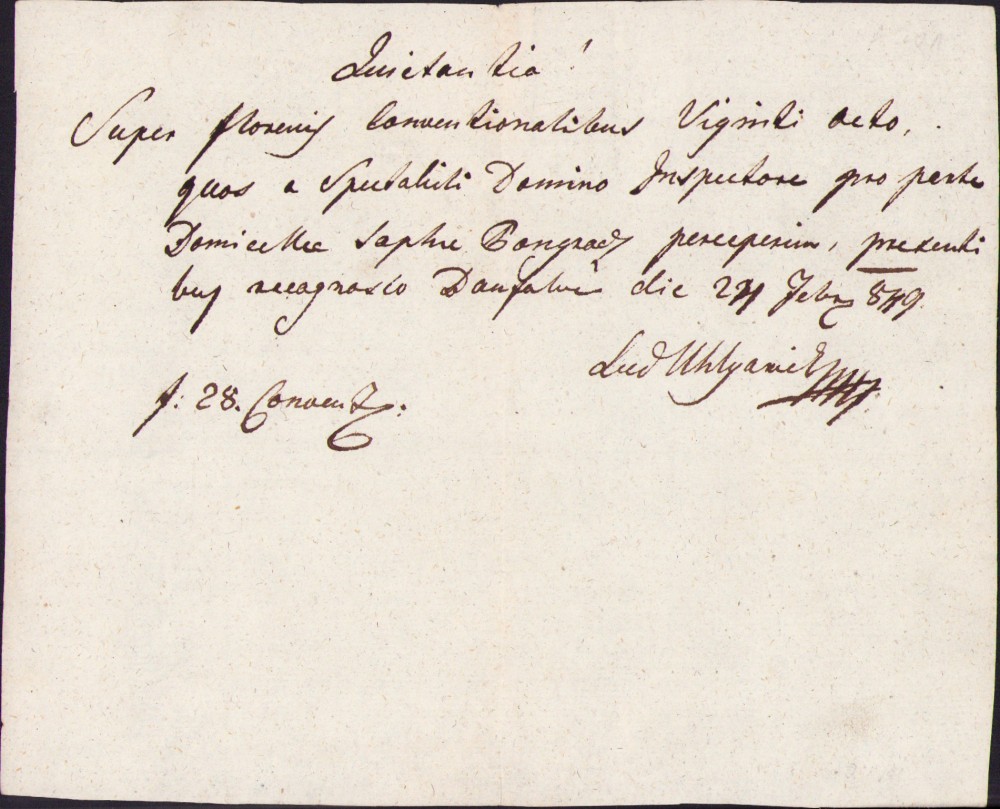 Quietantia!
Super florenis Conventionalibus Viginti octo,
quos a Spectabili Domino Inspectore pro parte
Domicellae Saphie Pongracz perceperim, presenti
bus recognosco Daníalvé die 24 Febr 849
Lud Uhlyarick
f: 28. Convent.